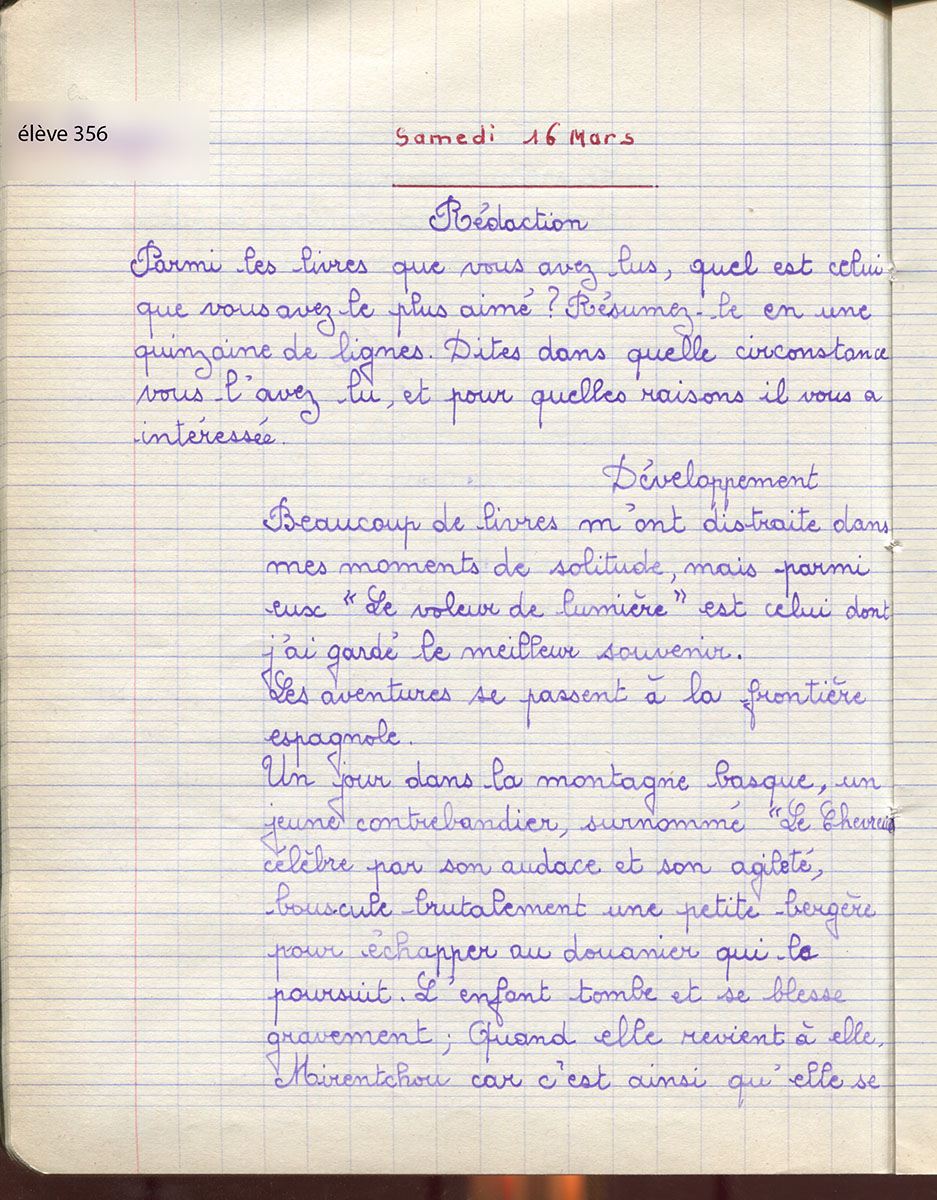 élève 356
Samedi 16 Mars
Rédaction
Parmi les livres que vous avez lus, quel est celui
que vous avez le plus aimé ? Résumez-le en une
quinzaine de lignes. Dites dans quelle circonstance
vous l'avez lu, et pour quelles raisons il vous a
intéressée.
Développement
Beaucoup de livres m'ont distraite dans
mes moments de solitude, mais parmi
eux "Le voleur de lumière" est celui dont
j'ai gardé le meilleur souvenir.
Les aventures se passent à la frontière
espagnole.
Un jour dans la montagne basque, un
jeune contrebandier, surnommé "Le Chevreuil
célèbre par son audace et son agileté,
bouscule brutalement une petite bergère
pour échapper au douanier qui le
poursuit. L'enfant tombe et se blesse
gravement ; Quand elle revient à elle,
Mirentchou car c'est ainsi qu'elle se